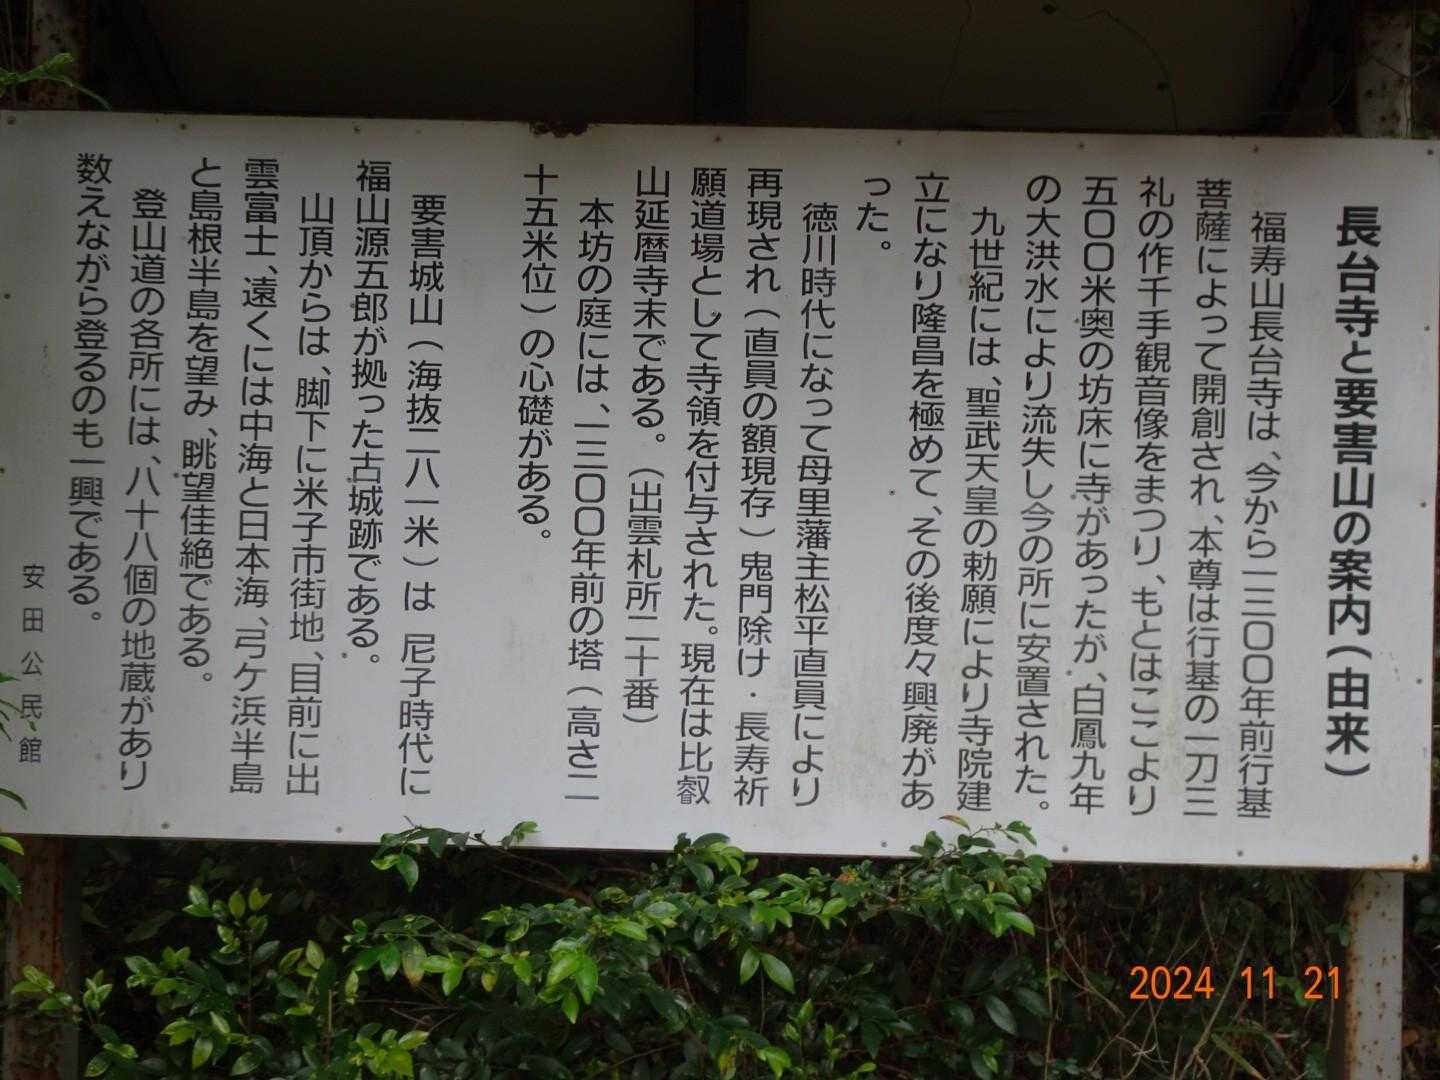 長台寺と要害山の案内（由来）
福寿山長台寺は、今から一三〇〇年前行基
菩薩によって開創され、本尊は行基の一刀三
礼の作千手観音像をまつり、もとはここより
五〇〇米奥の坊床に寺があったが、白鳳九年
の大洪水により流失し今の所に安置された。
九世紀には、聖武天皇の勅願により寺院建
立になり隆昌を極めて、その後度々興廃があ
った。
徳川時代になって母里藩主松平直員により
再現され（直員の額現存）鬼門除け・長寿祈
願道場として寺領を付与された。現在は比叡
山延暦寺末である。（出雲札所二十番）
本坊の庭には、一三〇〇年前の塔（高さ二
十五米位）の心礎がある。
要害城山（海抜二八一米）は 尼子時代に
福山源五郎が拠った古城跡である。
山頂からは、脚下に米子市街地、目前に出
雲富士、遠くには中海と日本海、弓ケ浜半島
と島根半島を望み、眺望佳絶である。
登山道の各所には、八十八個の地蔵があり
数えながら登るのも一興である。
安田公民館
2024 11 21